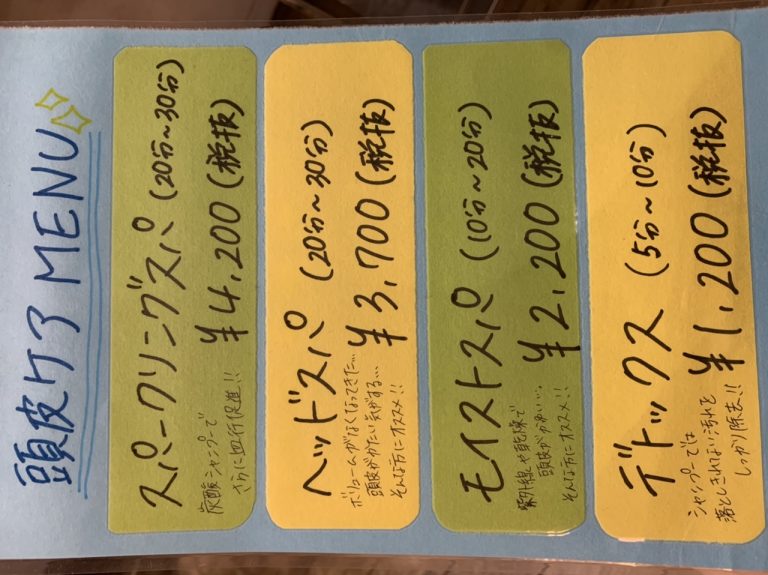 頭皮ケアMENU
スパークリングスパ (20分~30分)
炭酸シャンプーで
さらに血行促進!!
¥4,200(税抜)
ヘッドスパ (20分~30分)
ボリュームがなくなってきた…
頭皮がかたい気がする…
そんな方にオススメ!!
¥3,700(税抜)
モイストスパ (10分~20分)
紫外線や乾燥で
頭皮がかゆい…
そんな方にオススメ!!
¥2,200(税抜)
デトックス (5分~10分)
シャンプーでは
落としきれない汚れを
しっかり除去!!
¥1,200(税抜)